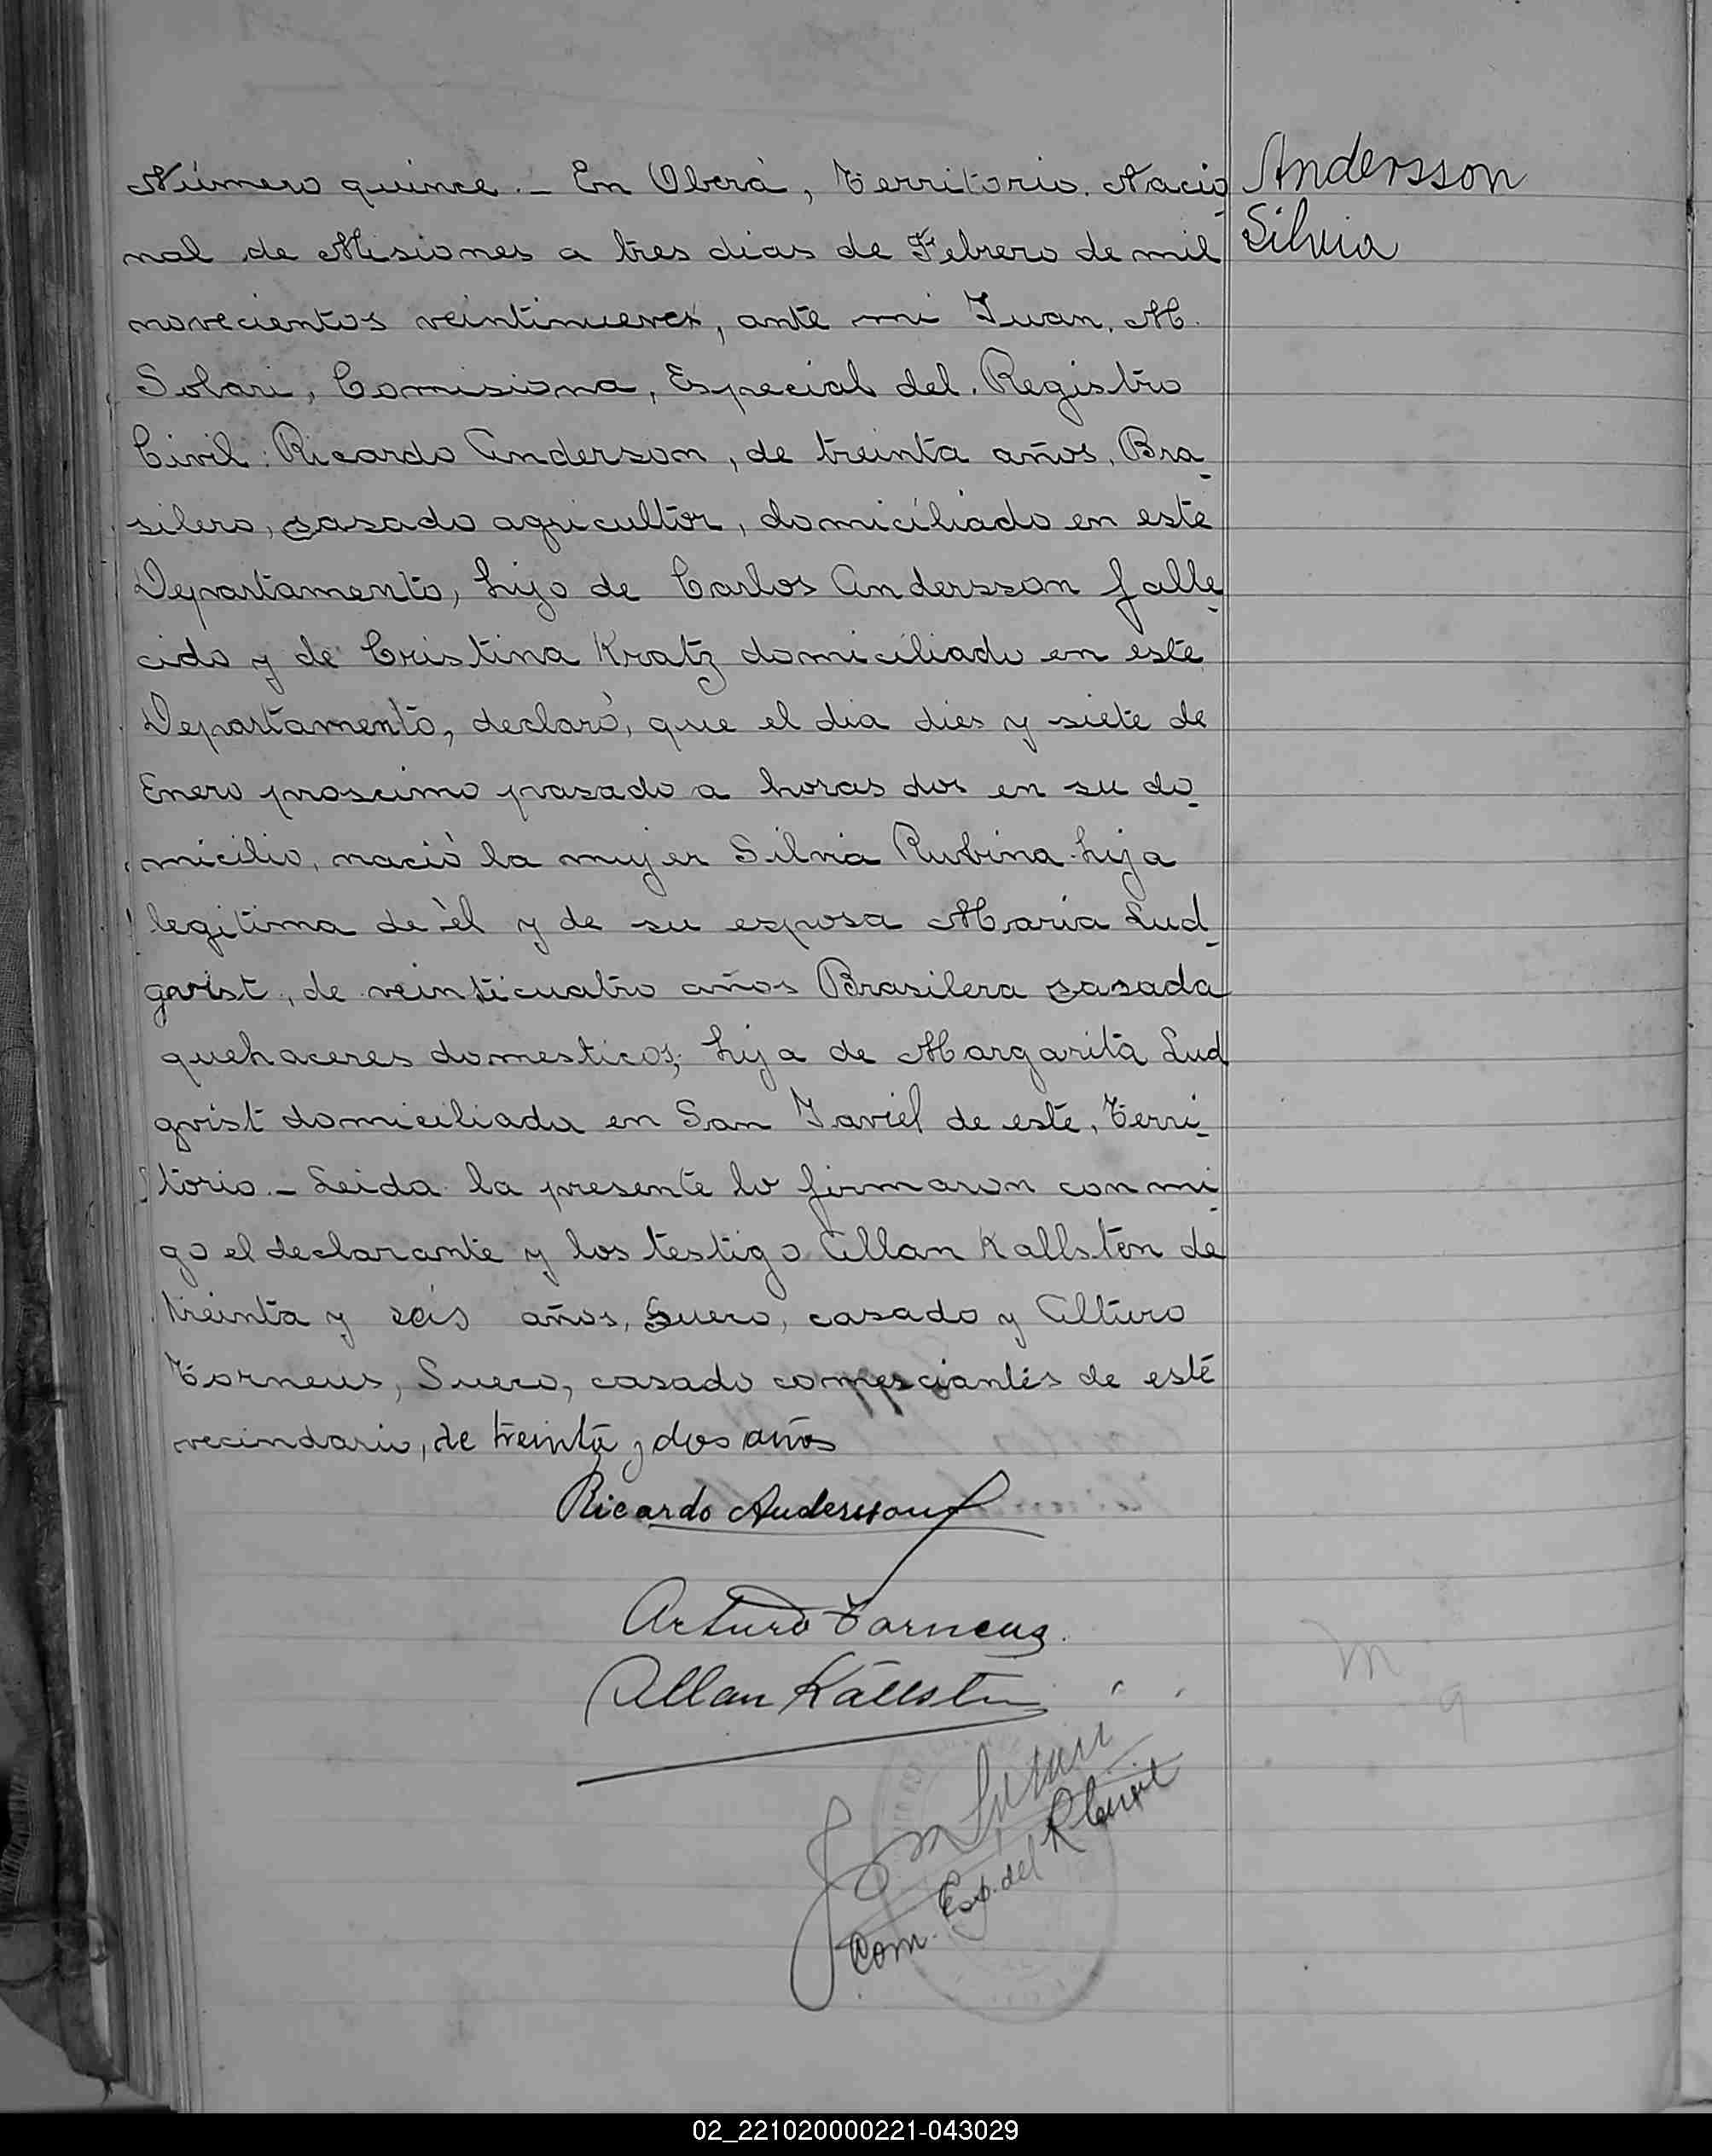 Número quince.- En Oberá, Territorio. Nacio
nal de Misiones a tres dias de Febrero de mil
novecientos veintinueve, ante mi Juan. M.
Solari, Comisiona, Especial del. Registro
Civil: Ricardo Anderson, de treinta años, Bra
silero, casado agricultor, domiciliado en este
Departamento, hijo de Carlos Andersson falle
cido y de Cristina Kratz domiciliado en este
Departamento, declaró, que el dia dies y siete de
Enero proscimo pasado a horas dos en su do
micilio, nació la mujer Silvia Rubina hija
legitima de èl y de su esposa Maria Lud
gvist, de veinticuatro años Brasilera casada
quehaceres domesticos, hija de Margarita Lud
gvist domiciliada en San Javiel de este, Terri
torio.- Leida la presente lo firmaron conmi
go el declarante y los testigo Allan Kallsten de
treinta y seis años, Sueco, casado y Alturo
Torneus, Sueco, casado comerciantes de este
vecindario, de treinta y dos años
Andersson
Silvia
Ricardo Andersson
Arturo Torneus.
Allan Källsten
J M Solari
Com. Esp. del R Civil
02_221020000221-043029